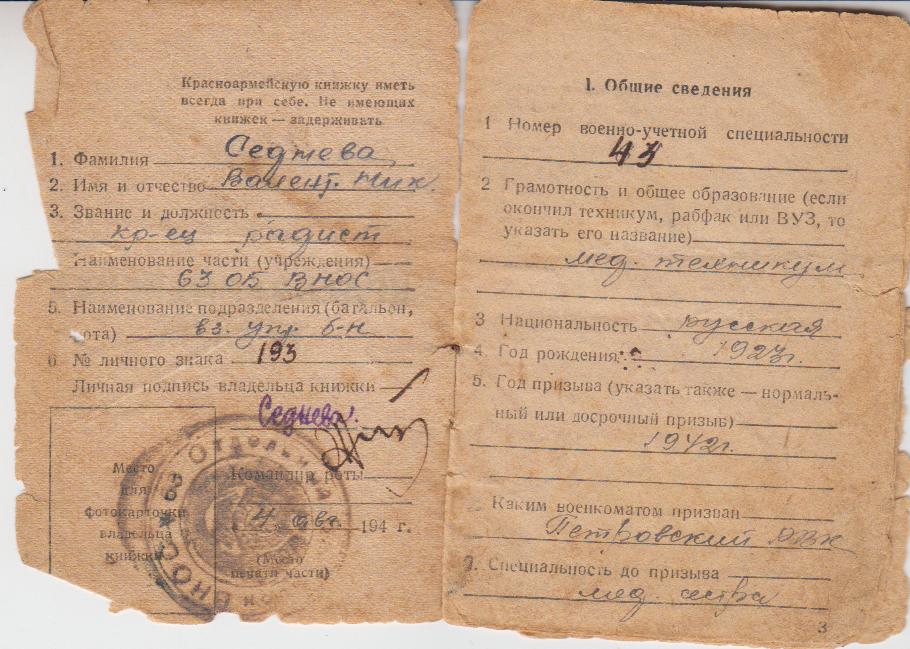 Красноармейскую книжку иметь
всегда при себе. Не имеющих
книжек — задерживать
1. Фамилия Седнева
2. Имя и отчество Валент. Ник.
3. Звание и должность
кр-ец радист
Наименование части (учреждения)
63 ОБ ВНОС
5. Наименование подразделения (батальон,
рота) вз. упр. б-н
6 № личного знака 193
Личная подпись владельца книжки
Седнева
Командир роты
4 авг. 194 г.
(Место
печати части)
Место
для
фотокарточки
владельца
книжки
63 Отдельн
ВНОС
1. Общие сведения
1 Номер военно-учетной специальности
43
2 Грамотность и общее образование (если
окончил техникум, рабфак или ВУЗ, то
указать его название)
мед. техникум
3 Национальность русская
4. Год рождения 1923г.
5. Год призыва (указать также — нормаль-
ный или досрочный призыв)
1942г.
Каким военкоматом призван
Петровский РВК
Специальность до призыва
мед. сестра
3